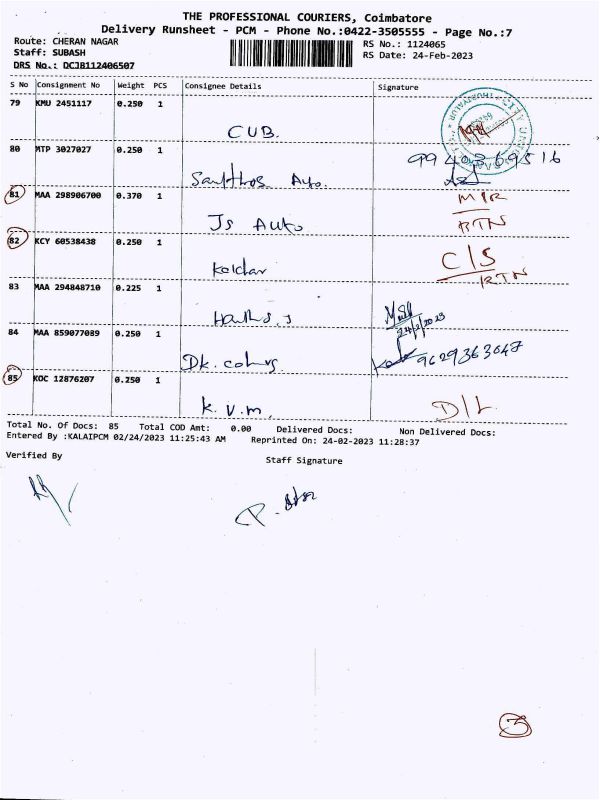 THE PROFESSIONAL COURIERS, Coimbatore
Delivery Runsheet - PCM - Phone No.:0422-3505555 - Page No.:7
Route: CHERAN NAGAR
RS No.: 1124065
Staff: SUBASH
RS Date: 24-Feb-2023
DRS No.: DCJB112406507
S No Consignment No Weight PCS Consignee Details Signature
79 KMU 2451117 0.250 1
CUB.
80 MTP 3027027 0.250 1
99 403 69516
Santhos Auto.
81 MAA 298906700 0.370 1
MIR
Js Auto
RTN
82 KCY 60538438 0.250 1
C/S
RTN
83 MAA 294848710 0.225 1
24/2/2023
84 MAA 859077089 0.250 1
9629363047
Dk.
85 KOC 12876207 0.250 1
D/L
K.V.M.
Total No. Of Docs: 85 Total COD Amt: 0.00 Delivered Docs: Non Delivered Docs:
Entered By :KALAIPCM 02/24/2023 11:25:43 AM Reprinted On: 24-02-2023 11:28:37
Verified By
Staff Signature
3